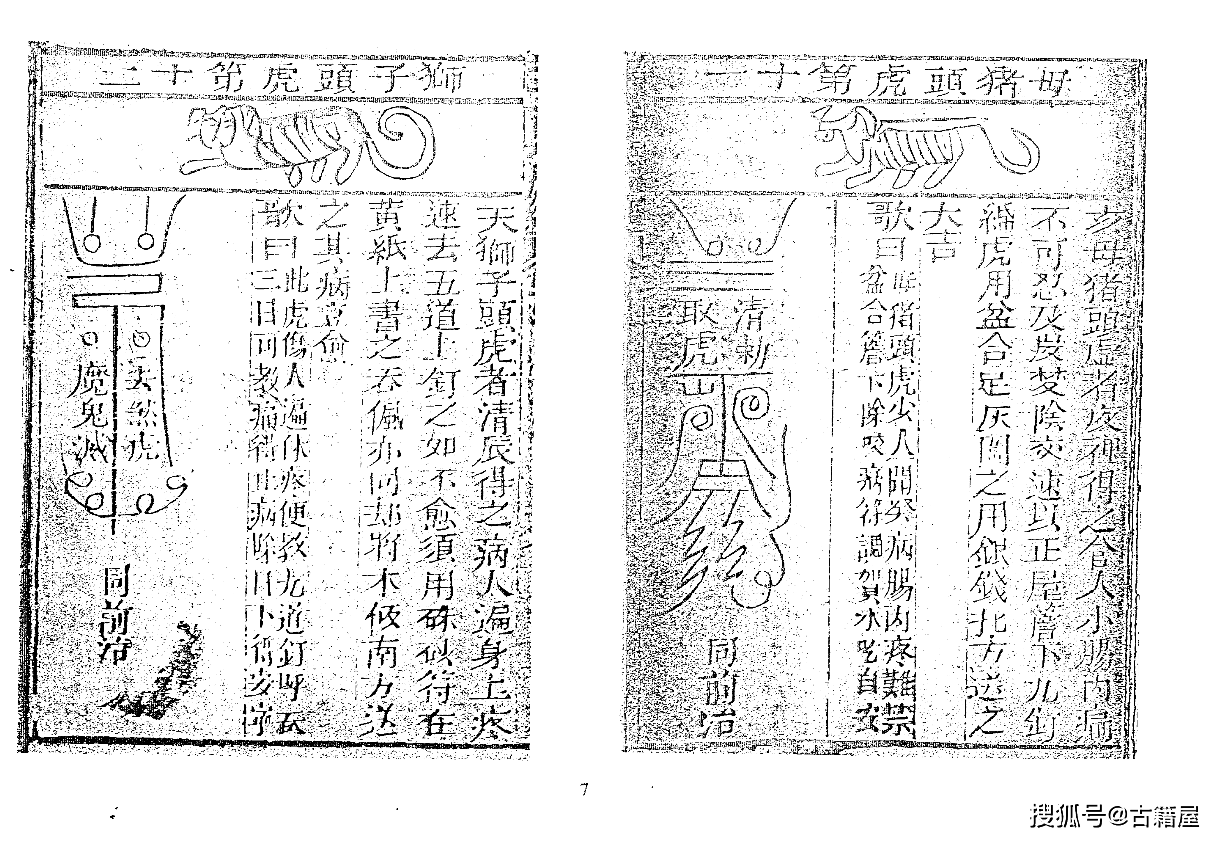 母猪頭虎第十一
亥母猪頭虎者夜神得之令人小腸内痛
不可忍及炭焚陰交速以正屋簷下九釘
綿虎用盆合足灰圍之用銀錢北方送之
大吉
歌曰
猪頭虎少人開癸病腸内疼難禁
盆合簷下除咬病符調賀水吃自安
清勅
取虎
同前治
獅子頭虎第十二
天獅子頭虎者清辰得之病人遍身上疼
速去五道上釘之如不愈須用硃砂符在
黄紙上書之吞佩亦同却將木依南方送
之其病立愈
歌曰
此虎傷人遍体疼便教九道釘呼
三日同教痛病除日下得安
魔鬼滅
虎
同前治
7
搜狐号@古籍屋